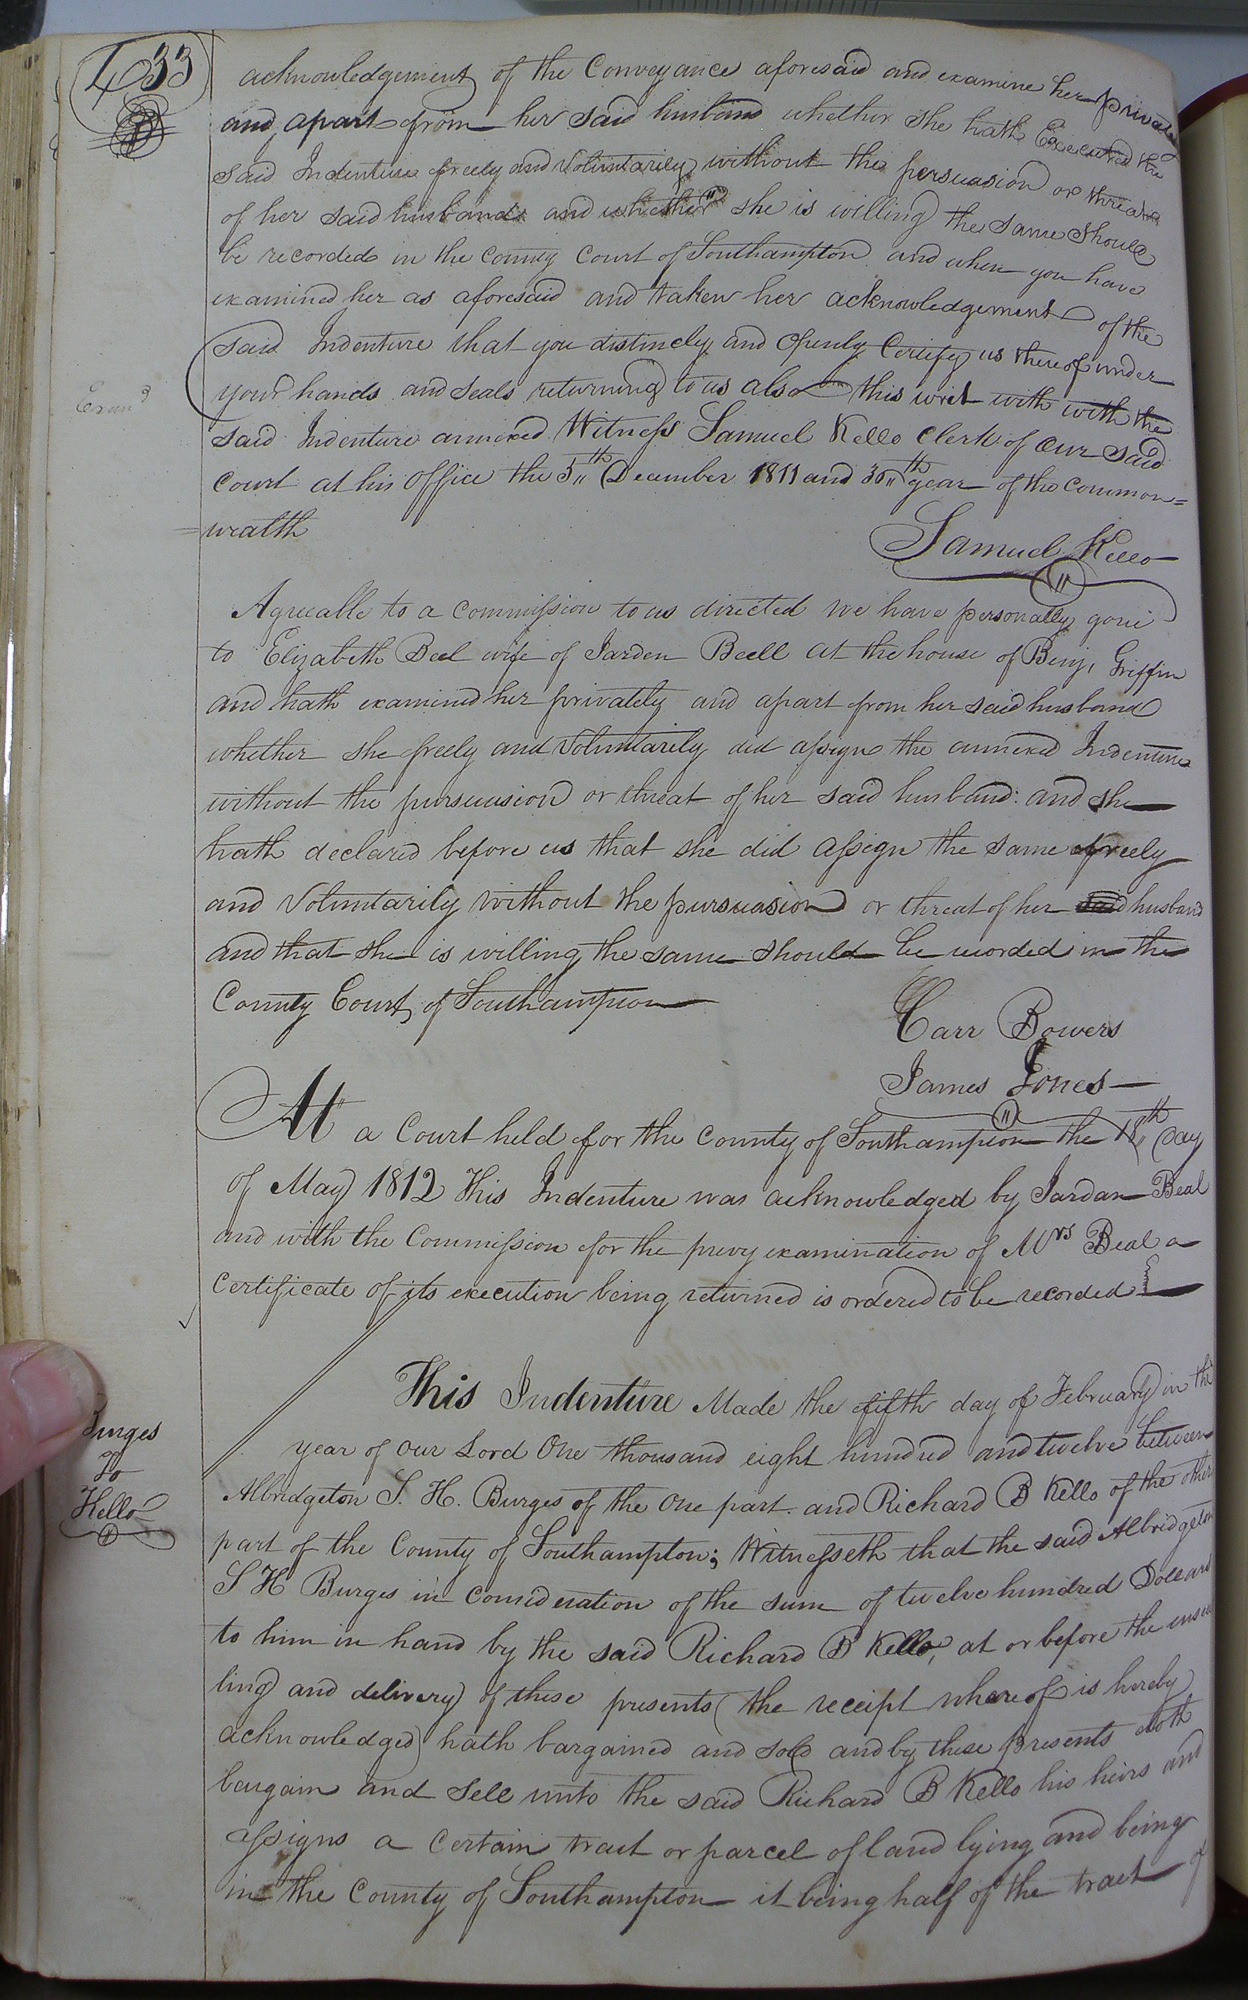 433
acknowledgement of the Conveyance aforesaid and examine her private
and apart from her said husband whether she hath Executed the
said Indenture freely and Voluntarily without the persuasion or threat
of her said husband and whether she is willing the same should
be recorded in the County Court of Southampton and when you have
examined her as aforesaid and taken her acknowledgement of the
said Indenture that you distinctly and Openly Certify us thereof under
Exam^d
your hands and seals returning to us also this writ with with the
said Indenture annexed Witness Samuel Kello Clerk of our said
Court at his Office the 5th December 1811 and 36th year of the Common=
=wealth
Samuel Kello
Agreeable to a Commission to us directed we have personally gone
to Elizabeth Beel wife of Jarden Beell at the house of Benj. Griffin
and hath examined her privately and apart from her said husband
whether she freely and Voluntarily did assign the annexed Indenture
without the pursuasion or threat of her said husband: and she
hath declared before us that she did assign the same freely
and Voluntarily without the pursuasion or threat of her said husband
and that she is willing the same should be recorded in the
County Court of Southampton
Carr Bowers
James Jones
At a Court held for the County of Southampton the 18th day
of May 1812 This Indenture was acknowledged by Jardan Beal
and with the Commission for the privy examination of Mrs Beal a
Certificate of its execution being returned is ordered to be recorded
This Indenture Made the fifth day of February in the
Burges
To
Kello
year of our Lord One thousand eight hundred and twelve between
Albridgeton S. H. Burges of the One part and Richard B Kello of the other
part of the County of Southampton; Witnesseth that the said Albridgeton
S H Burges in consideration of the sum of twelve hundred Dollars
to him in hand by the said Richard B Kello, at or before the ensea
ling and delivery of these presents (the receipt whereof is hereby
acknowledged) hath bargained and sold and by these presents doth
bargain and sell unto the said Richard B Kello his heirs and
assigns a certain tract or parcel of land lying and being
in the County of Southampton it being half of the tract of